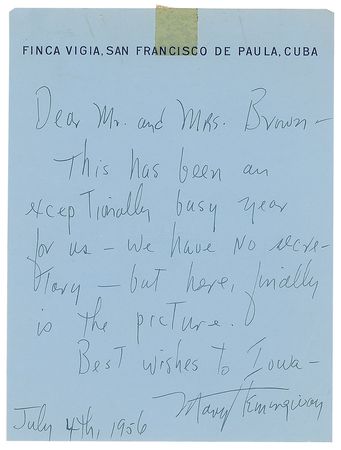 FINCA VIGIA, SAN FRANCISCO DE PAULA, CUBA
Dear Mr. and Mrs. Brown –
This has been an
exceptionally busy year
for us – we have no secre-
tary – but here, finally
is the picture.
Best wishes to Iowa –
Mary Hemingway
July 4th, 1956